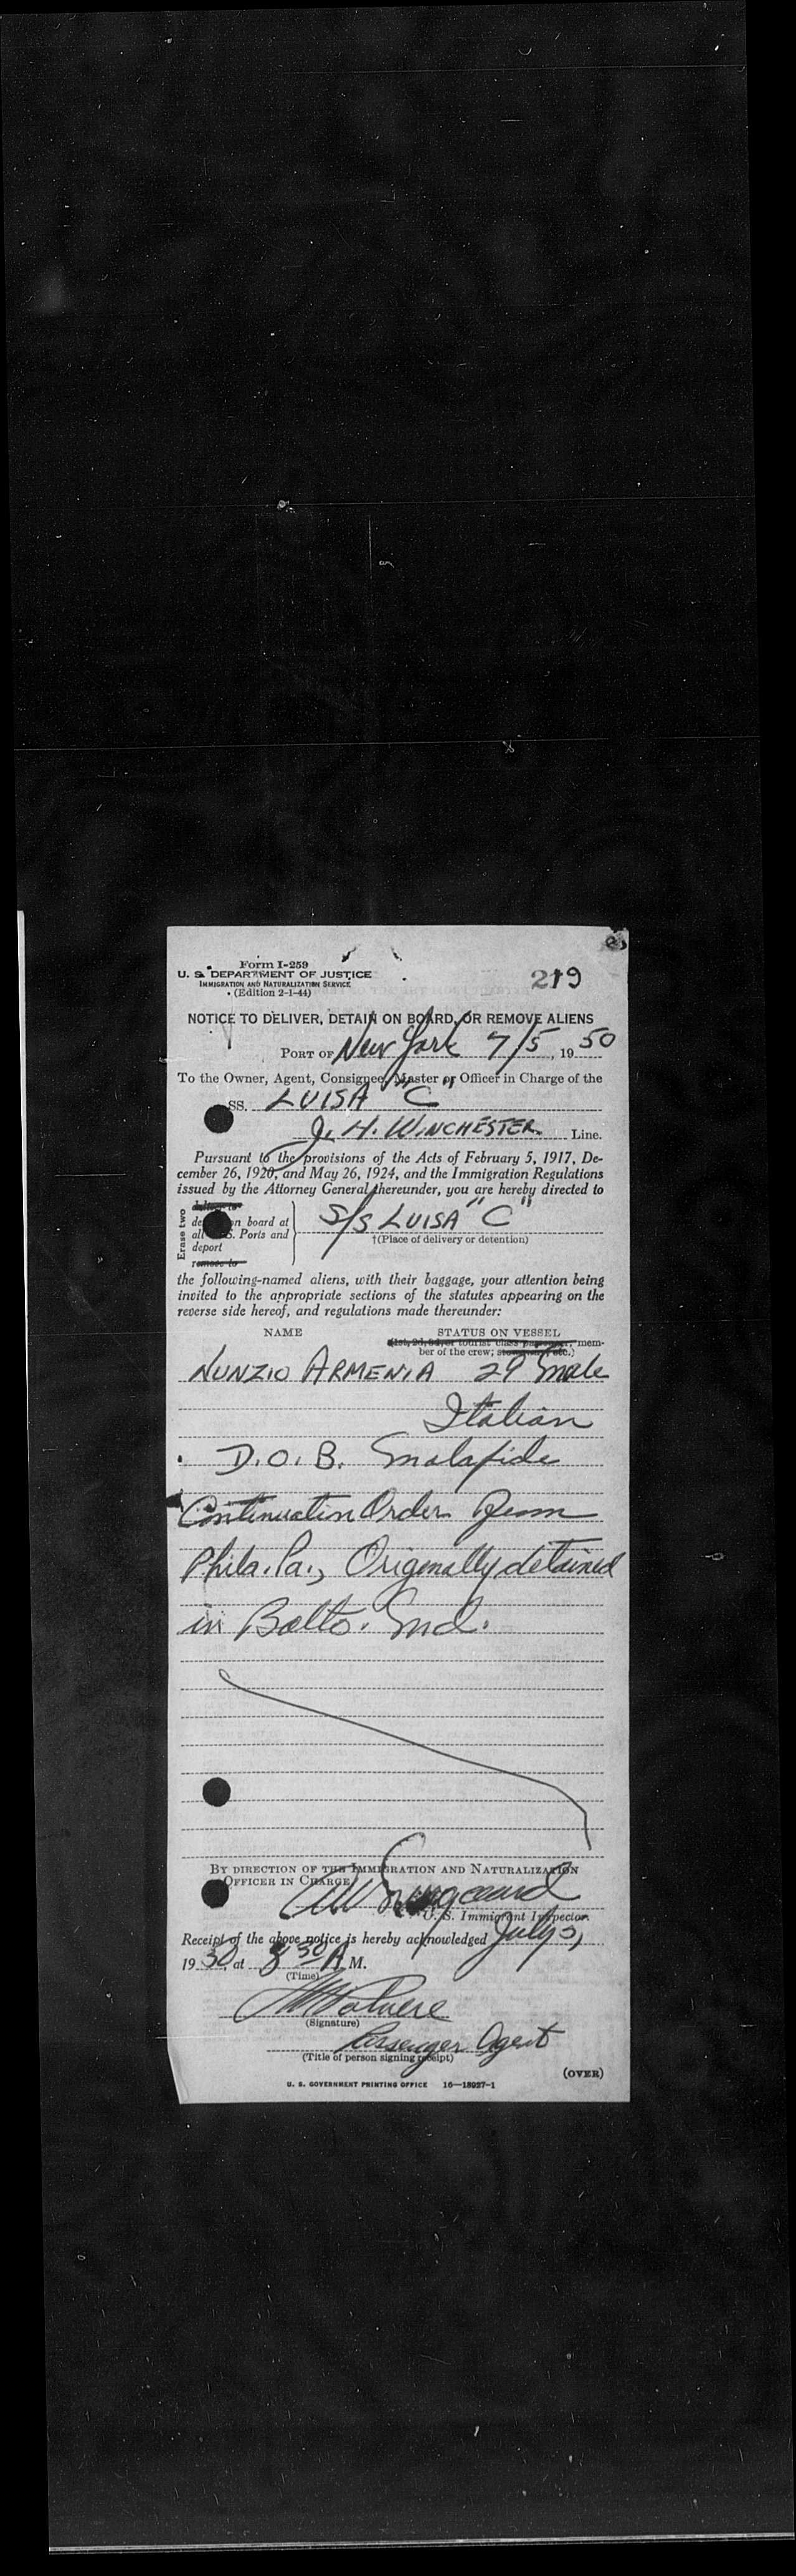 Form I-259
U. S. DEPARTMENT OF JUSTICE
IMMIGRATION AND NATURALIZATION SERVICE
(Edition 2-1-44)
219
NOTICE TO DELIVER, DETAIN ON BOARD, OR REMOVE ALIENS
PORT OF New York 7/5, 1950
To the Owner, Agent, Consignee, Master or Officer in Charge of the
SS. LUISA "C"
J. H. WINCHESTER Line.
Pursuant to the provisions of the Acts of February 5, 1917, De-
cember 26, 1920, and May 26, 1924, and the Immigration Regulations
issued by the Attorney General thereunder, you are hereby directed to
Erase two
deliver to
on board at S/S LUISA "C"
all Ports and †(Place of delivery or detention)
deport
remove to
the following-named aliens, with their baggage, your attention being
invited to the appropriate sections of the statutes appearing on the
reverse side hereof, and regulations made thereunder:
NAME STATUS ON VESSEL
(1st, 2d, 3d, or tourist class passenger, mem-
ber of the crew; etc.)
NUNZIO ARMENIA 29 male
Italian
D.O.B. malafide
Continuation Order from
Phila. Pa., Originally detained
in Balto. Md.
BY DIRECTION OF THE IMMIGRATION AND NATURALIZATION
OFFICER IN CHARGE
U. S. Immigrant Inspector.
Receipt of the above notice is hereby acknowledged July 5,
1950, at 8 30 A M.
(Time)
(Signature)
Passenger Agent
(Title of person signing receipt)
(OVER)
U. S. GOVERNMENT PRINTING OFFICE 16—18927-1